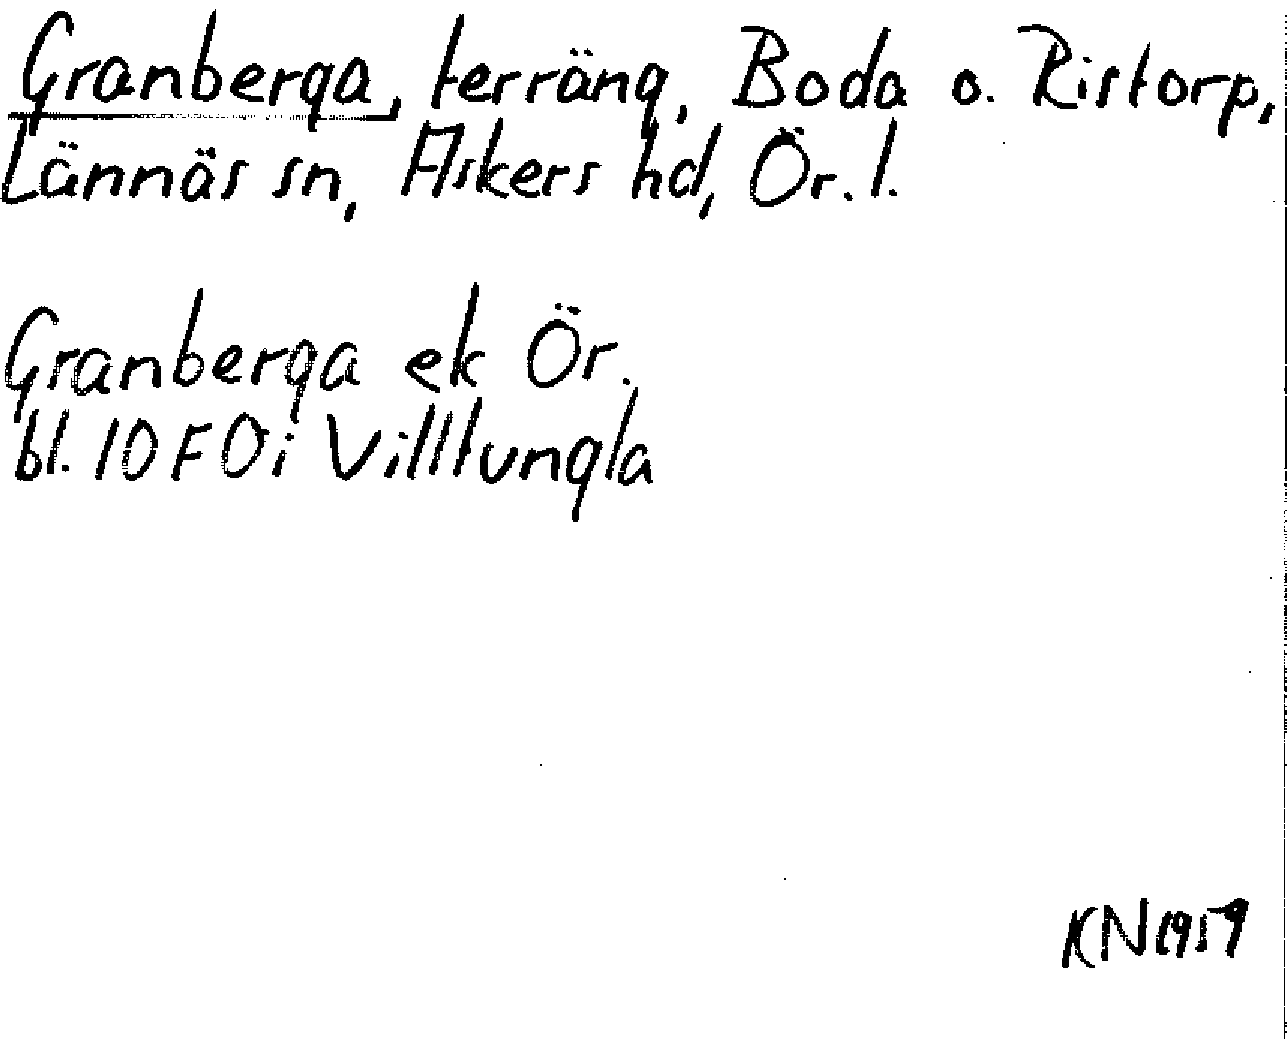 Granberga, terräng, Boda o. Ristorp,
Lännäs sn, Askers hd, Ör. l.
Granberga ek Ör.
bl. 10 F 0 i Villtungla
KN 1959